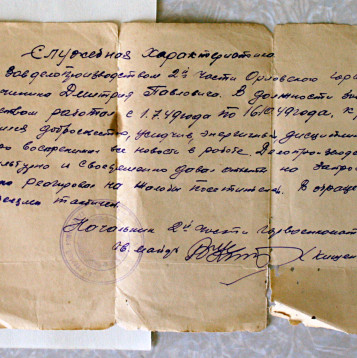 Служебная характеристика
Завделопроизводством 2й части Орловского горв
Дмитрия Павловича. В должности зав
работал с 1.7.49 года по 16.10.49 года, к р
добросовестно, усидчив, энергичный, дисципли
воспринимал все новости в работе. Делопроизвод
и своевременно давал ответы на запро
реагировал на жалобы посетителей. В обраще
тактичен.
Начальник 2й части Горвоенкомата
Гв. майор